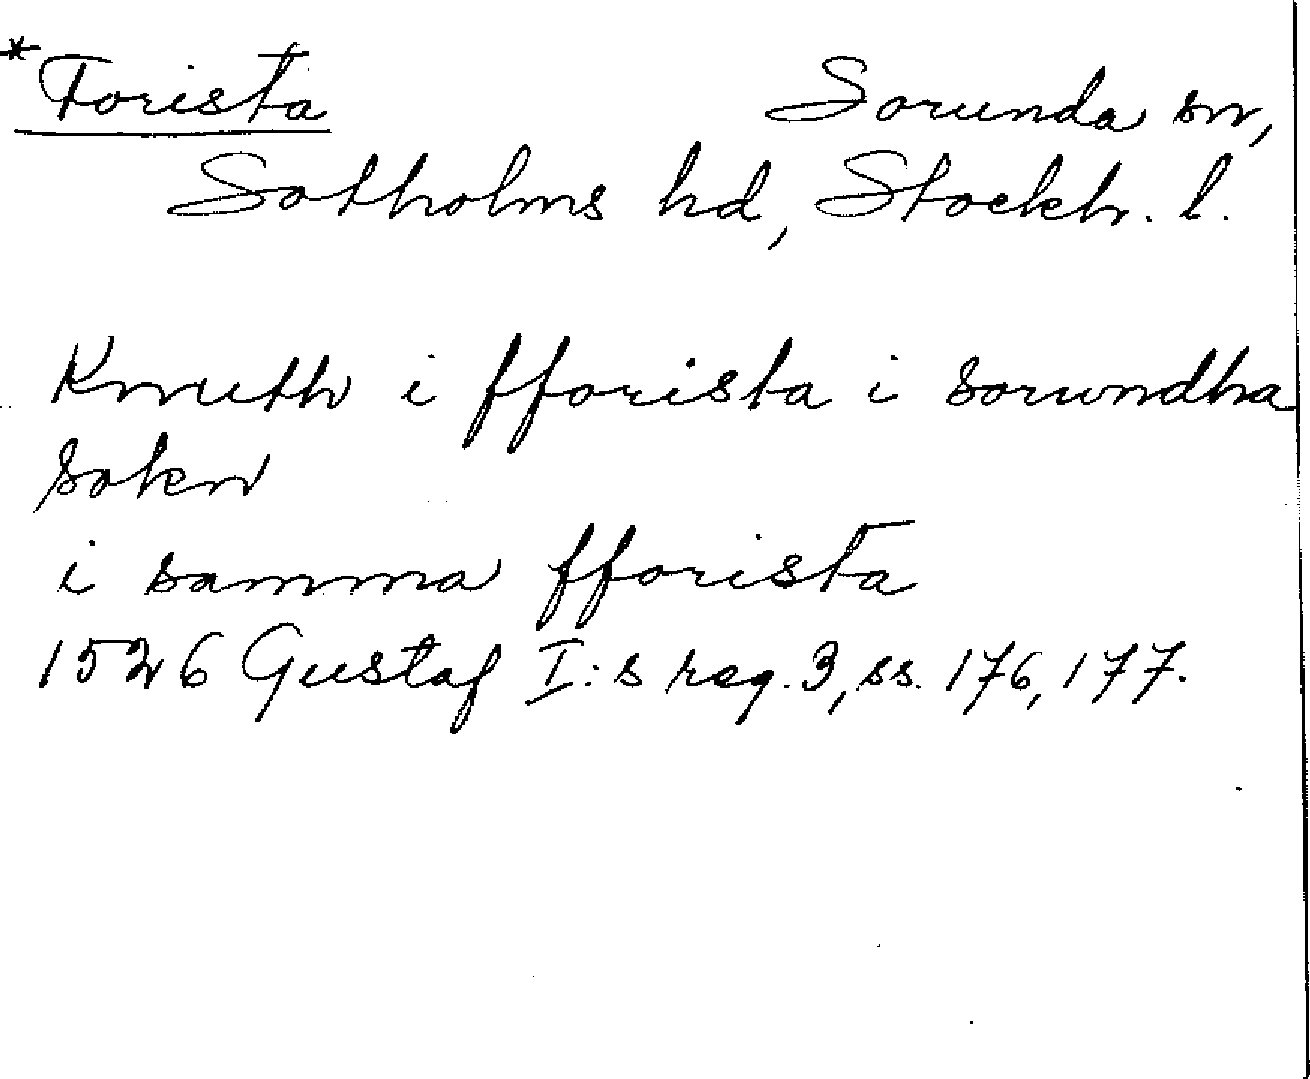 *Forista Sorunda sn,
Sotholms hd, Stockh. l.
Knuth i fforista i sorundha
sokn
i samma fforista
1526 Gustaf I:s reg. 3, ss. 176, 177.